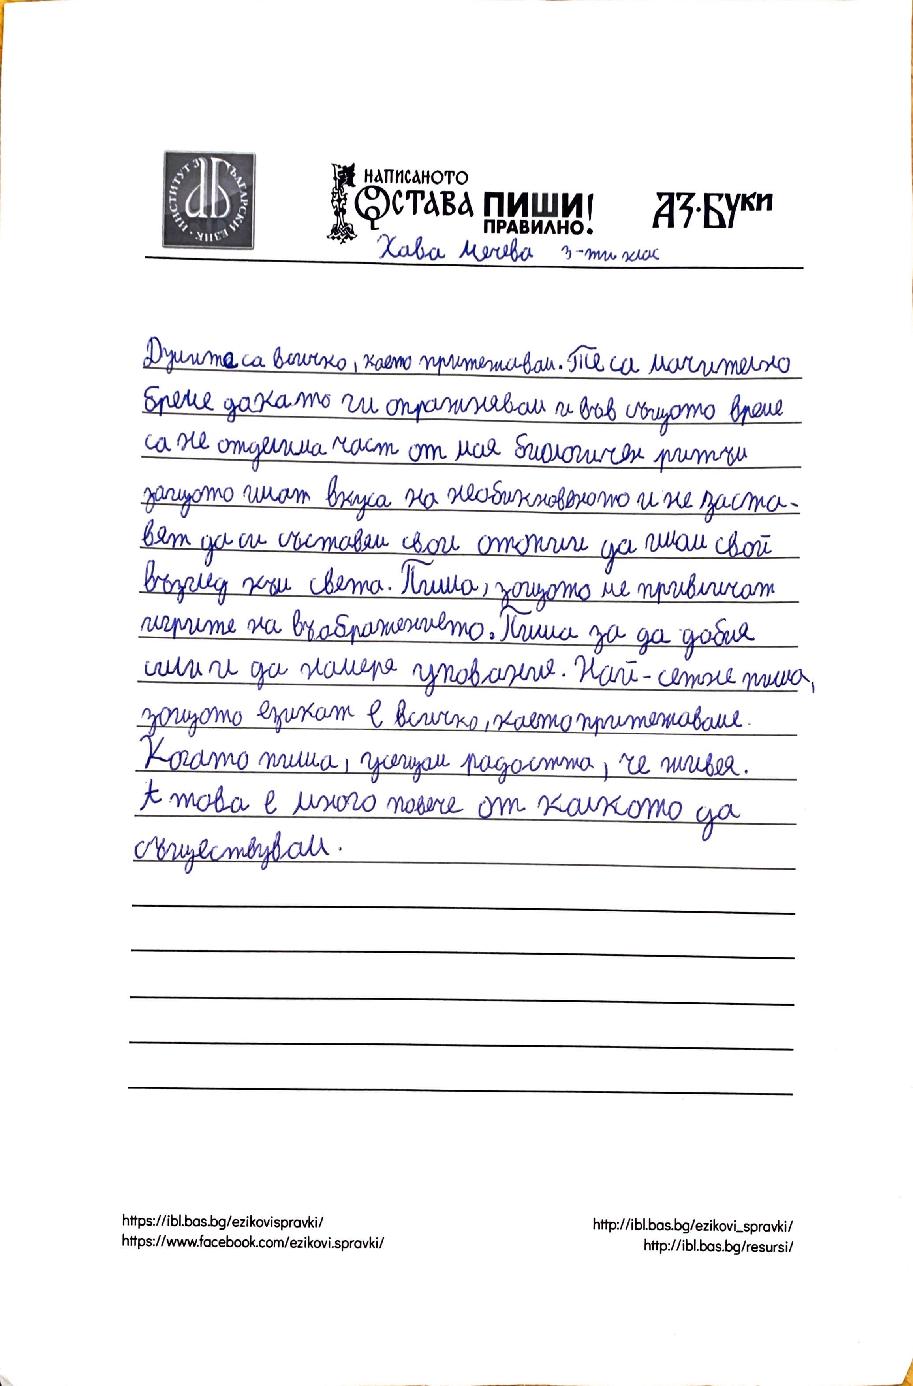 ИНСТИТУТ ЗА БЪЛГАРСКИ ЕЗИК
НАПИСАНОТО
ОСТАВА ПИШИ!
ПРАВИЛНО.
АЗ·БУКИ
Хава Мечева 3-ти клас
Думите са всичко, което притежавам. Те са мъчително
бреме дакато ги опражнявам и във същото време
са не отделима част от мая биологичен ритъм
защото имат вкуса на необикновеното и ме заста-
вят да си съставям свои опити да имам свой
възглед към света. Пиша, защото ме привличат
игрите на въображението. Пиша за да добия
сили и да намеря упование. Най-сетне пиша,
защото езикат е всичко, което притежаваме.
Когато пиша, усещам радостта, че живея.
А това е много повече от колкото да
съществувам.
https://ibl.bas.bg/ezikovispravki/
https://www.facebook.com/ezikovi.spravki/
http://ibl.bas.bg/ezikovi_spravki/
http://ibl.bas.bg/resursi/